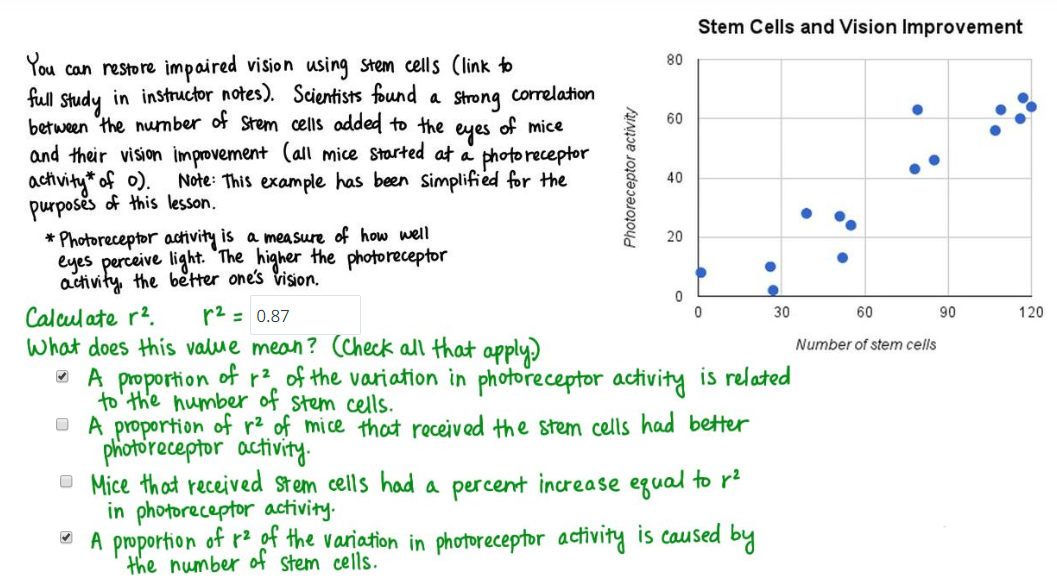 Stem Cells and Vision Improvement
You can restore impaired vision using stem cells (link to
full study in instructor notes). Scientists found a strong correlation
between the number of stem cells added to the eyes of mice
and their vision improvement (all mice started at a photoreceptor
activity* of 0). Note: This example has been simplified for the
purposes of this lesson.
* Photoreceptor activity is a measure of how well
eyes perceive light. The higher the photoreceptor
activity, the better one's vision.
80
60
40
20
0
Photoreceptor activity
0 30 60 90 120
Number of stem cells
Calculate r². r² = 0.87
What does this value mean? (Check all that apply.)
A proportion of r² of the variation in photoreceptor activity is related
to the number of stem cells.
A proportion of r² of mice that received the stem cells had better
photoreceptor activity.
Mice that received stem cells had a percent increase equal to r²
in photoreceptor activity.
A proportion of r² of the variation in photoreceptor activity is caused by
the number of stem cells.